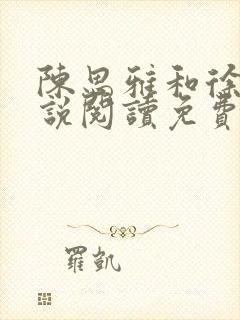 陳思雅和徐
說閱讀免費
羅凱